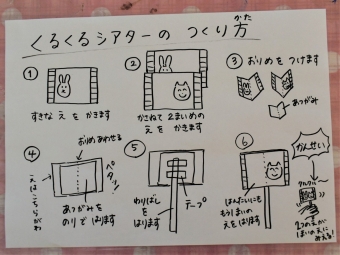 くるくるシアターの つくり方
かた
①
すきな え を かきます
②
かさねて 2まいめの
え を かきます
③ おりめ を つけます
あつがみ
④
おりめ あわせる
ペタッ!
えは こちらがわ
あつがみを
のり で はります
⑤
わりばしを
はります
テープ
⑥
はんたいにも
もう1まいの
えを はります
かんせい
クルクル
2つのえが
1まいの えに
みえる!